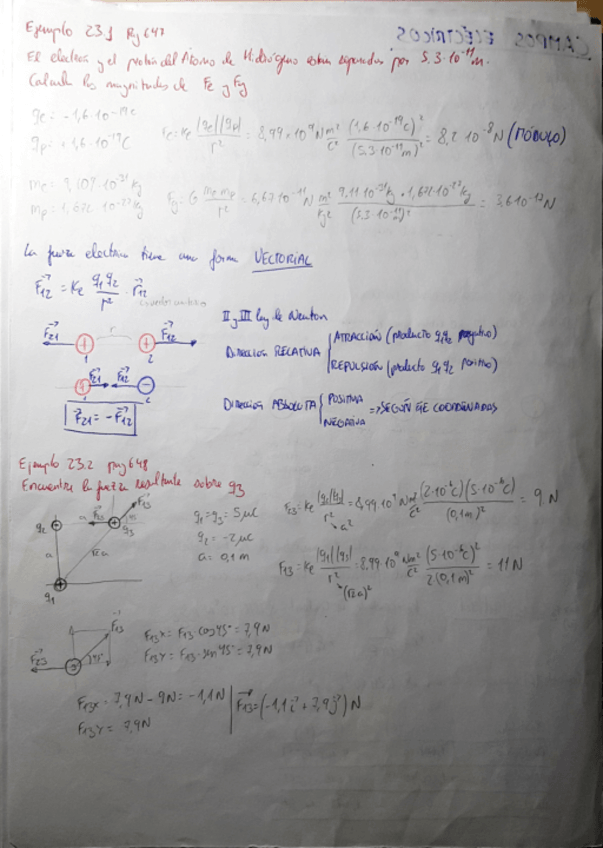 CAMPOS ELÉCTRICOS
Ejemplo 23.1 Pag 647
El electrón y el protón del Átomo de Hidrógeno están separados por 5.3·10⁻¹¹ m.
Calcula las magnitudes de Fe y Fg
qe = -1,6·10⁻¹⁹ C
qp = +1,6·10⁻¹⁹ C
Fe = Ke |qe||qp| / r² = 8,99·10⁹ N m²/C² (1,6·10⁻¹⁹ C)² / (5.3·10⁻¹¹ m)² = 8,2·10⁻⁸ N (MÓDULO)
me = 9,109·10⁻³¹ kg
mp = 1,672·10⁻²⁷ kg
Fg = G me mp / r² = 6,67·10⁻¹¹ N m²/kg² 9,11·10⁻³¹ kg · 1,672·10⁻²⁷ kg / (5.3·10⁻¹¹ m)² = 3,6·10⁻⁴⁷ N
La fuerza eléctrica tiene una forma VECTORIAL
F₁₂ = Ke q₁q₂ / r² · r₁₂
II y III ley de Newton
F₂₁ r F₁₂
1 2
DIRECCIÓN RELATIVA
ATRACCIÓN (producto q₁q₂ negativo)
REPULSIÓN (producto q₁q₂ positivo)
F₂₁ F₁₂
1 2
F₂₁ = -F₁₂
DIRECCIÓN ABSOLUTA
POSITIVA
NEGATIVA
⇒ SEGÚN EJE COORDENADAS
Ejemplo 23.2 pag 648
Encuentre la fuerza resultante sobre q₃
q₂ a F₂₃ q₃ F₁₃
a √2a
q₁
q₁ = q₃ = 5 μC
q₂ = -2 μC
a = 0,1 m
F₂₃ = Ke |q₂||q₃| / r² = 8,99·10⁹ Nm²/C² (2·10⁻⁶ C)(5·10⁻⁶ C) / (0,1 m)² = 9 N
a²
F₁₃ = Ke |q₁||q₃| / r² = 8,99·10⁹ Nm²/C² (5·10⁻⁶ C)² / 2(0,1 m)² = 11 N
(√2a)²
F₂₃ 45° F₁₃
F₁₃x = F₁₃ cos 45° = 7,9 N
F₁₃y = F₁₃ · sen 45° = 7,9 N
F₁₃x = 7,9 N - 9 N = -1,1 N
F₁₃y = 7,9 N
F₁₃ = (-1,1 i + 7,9 j) N